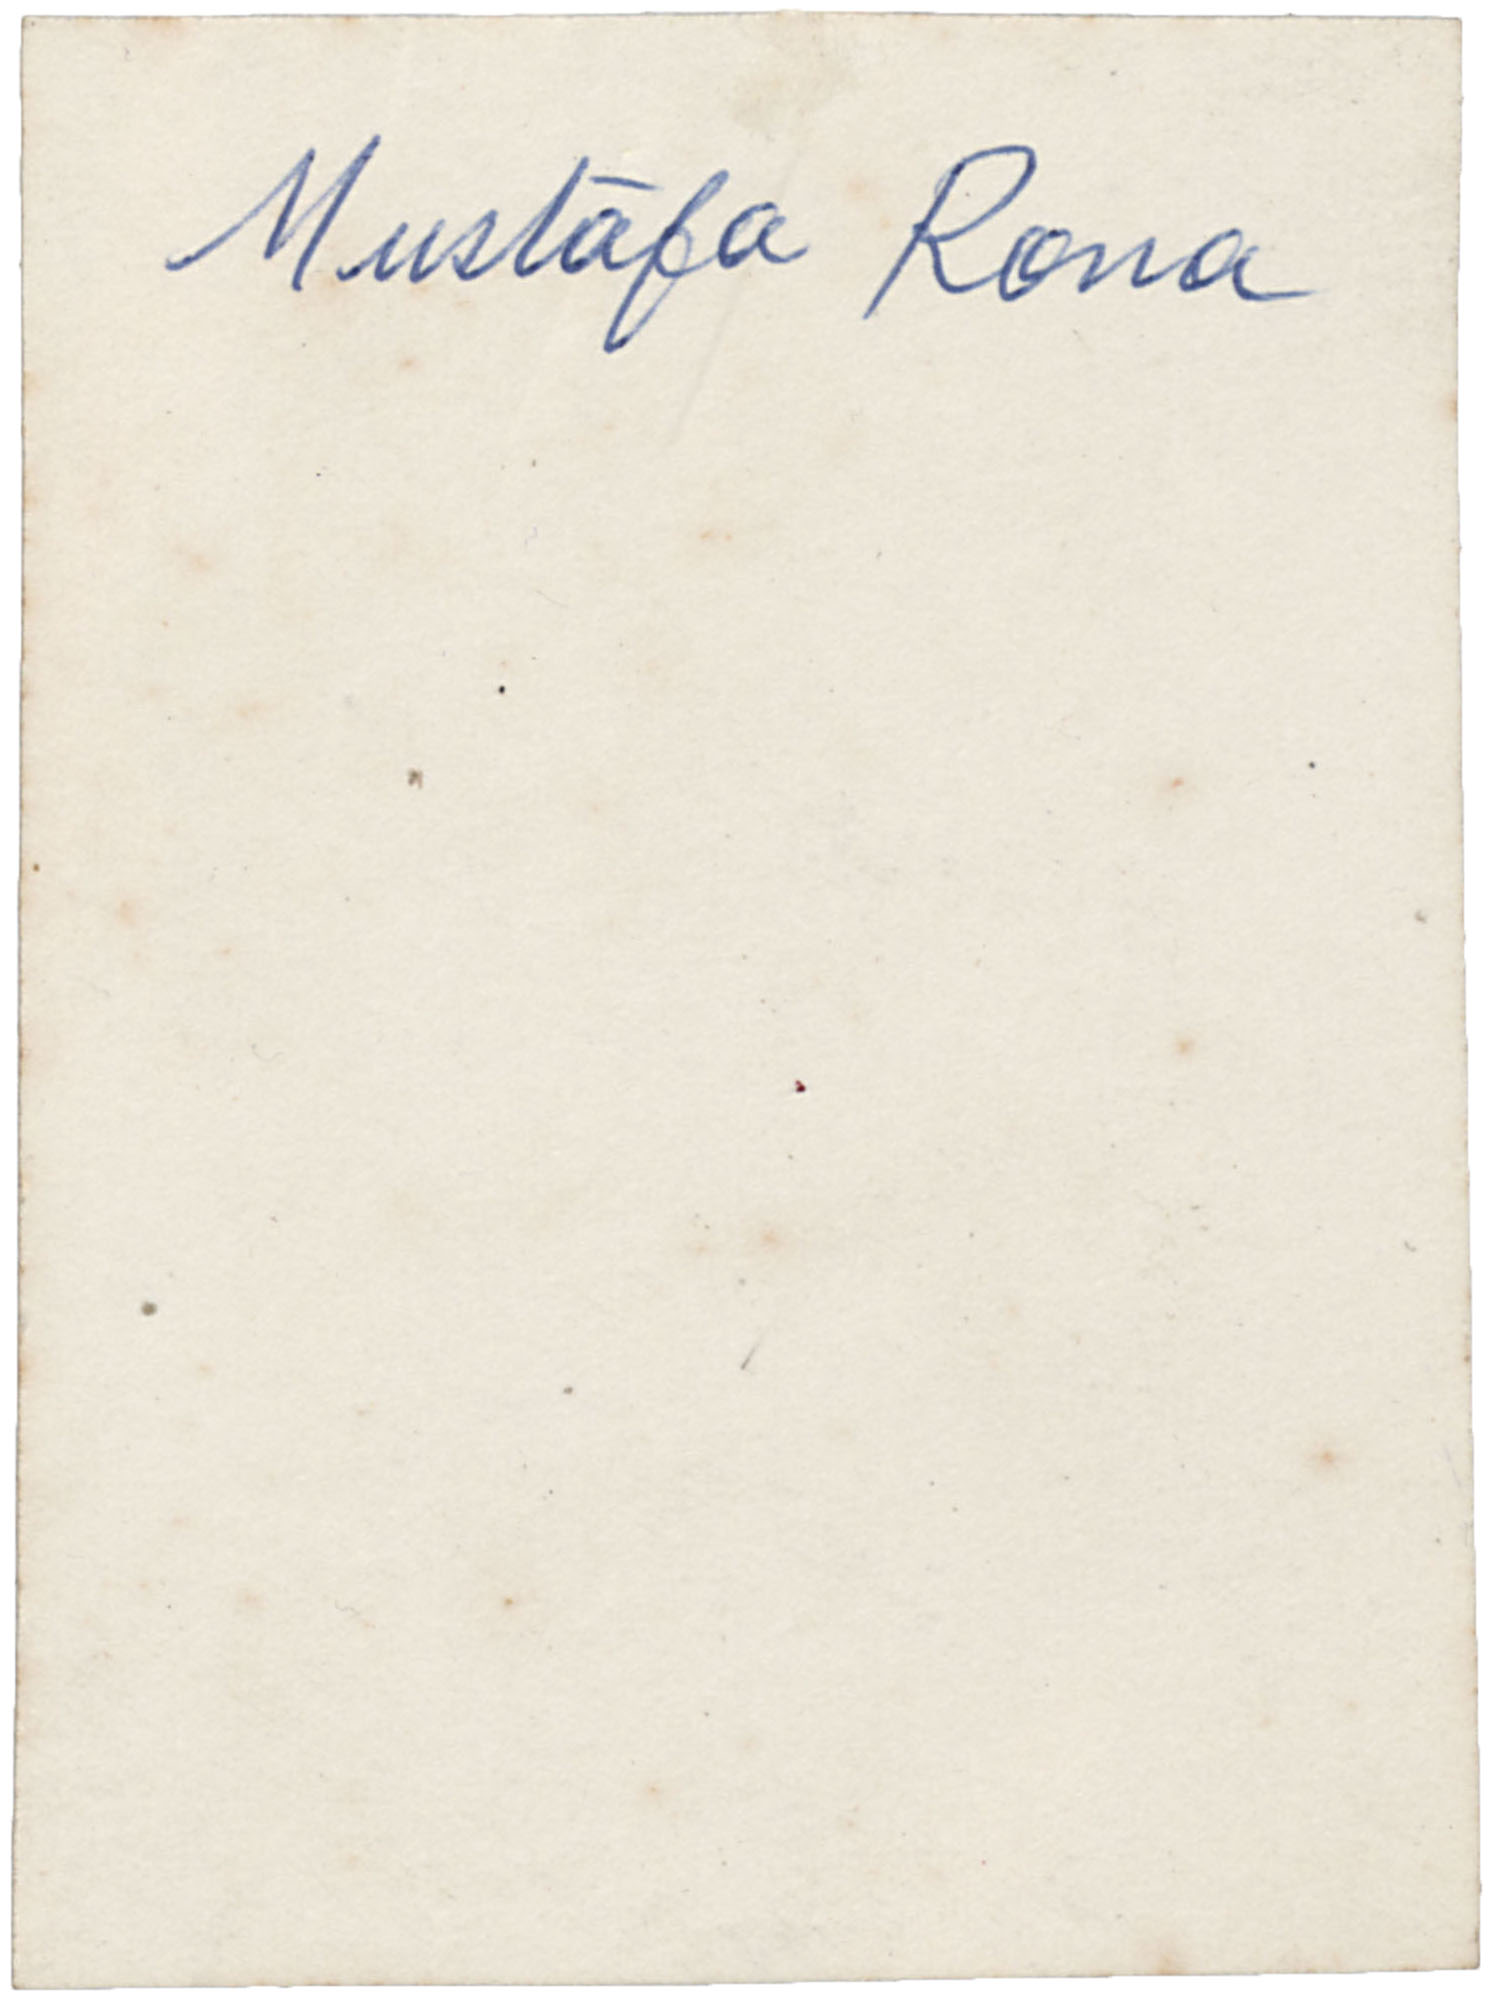 Mustafa Rona